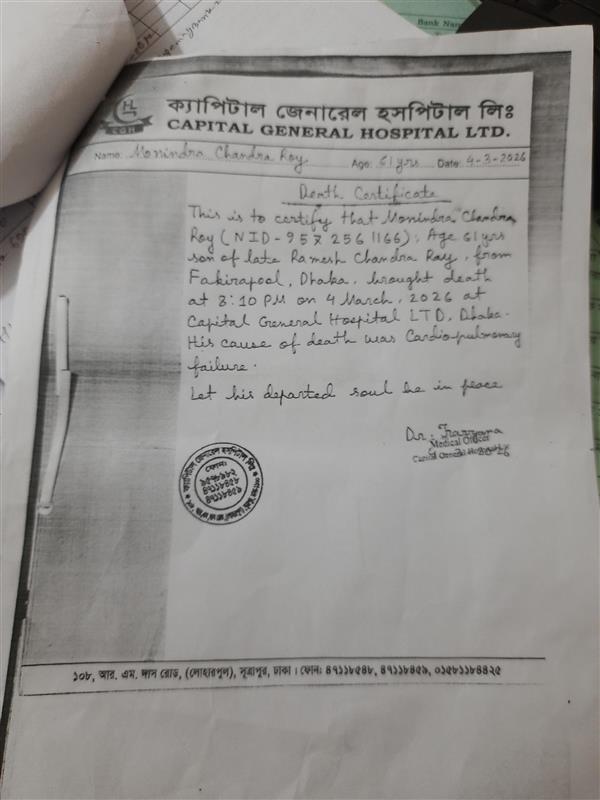 Bank Nam
CGH
ক্যাপিটাল জেনারেল হসপিটাল লিঃ
CAPITAL GENERAL HOSPITAL LTD.
Name: Monindra Chandra Roy Age: 61 yrs Date: 4-3-2026
Death Certificate
This is to certify that Monindra Chandra
Roy (NID - 957 256 1166), Age 61 yrs
son of late Ramesh Chandra Ray, from
Fakirapool, Dhaka, brought death
at 8:10 PM on 4 March, 2026 at
Capital General Hospital LTD, Dhaka.
His cause of death was Cardio-pulmonary
failure.
Let his departed soul be in peace
Dr.
Medical Officer
Capital General Hospital
ক্যাপিটাল জেনারেল হসপিটাল লিঃ
ফোন:
৯৫৭৮৯৮২
৪৭১১৮৫৪৮
৪৭১১৮৪৫৯
১০৮, আর. এম. দাস রোড, (লোহারপুল), সূত্রাপুর, ঢাকা । ফোন: ৪৭১১৮৫৪৮, ৪৭১১৮৪৫৯, ০১৫৮১১৮৪৪২৫